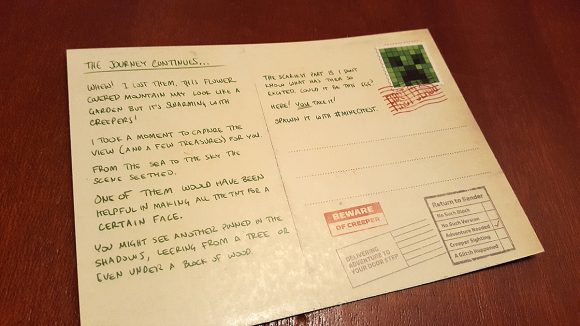 THE JOURNEY CONTINUES...
WHEW! I LOST THEM. THIS FLOWER
COVERED MOUNTAIN MAY LOOK LIKE A
GARDEN BUT IT'S SWARMING WITH
CREEPERS!
I TOOK A MOMENT TO CAPTURE THE
VIEW (AND A FEW TREASURES) FOR YOU.
FROM THE SEA TO THE SKY THE
SCENE SEETHED.
ONE OF THEM WOULD HAVE BEEN
HELPFUL IN MAKING ALL THE TNT FOR A
CERTAIN FACE.
YOU MIGHT SEE ANOTHER PINNED IN THE
SHADOWS, LEERING FROM A TREE OR
EVEN UNDER A BLOCK OF WOOD.
THE SCARIEST PART IS I DON'T
KNOW WHAT HAS THEM SO
EXCITED. COULD IT BE THIS EGG?
HERE! YOU TAKE IT!
SPAWN IT WITH #MINECHEST.
BEWARE
OF CREEPER
DELIVERING
ADVENTURE TO
YOUR DOOR STEP
Return to Sender
No Such Block
No Such Version
Adventure Needed
Creeper Sighting
A Glitch Happened